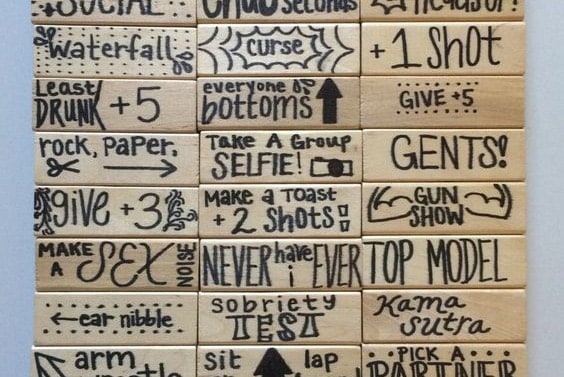 SOCIAL
seconds
Waterfall
curse
+1 Shot
Least
DRUNK +5
everyone
bottoms
GIVE +5
rock, paper,
Take A Group
SELFIE!
GENTS!
give +3
Make a Toast
+2 Shots!
GUN
SHOW
MAKE
A SEX NOISE
NEVER have i EVER
TOP MODEL
← ear nibble
sobriety
TEST
Kama
Sutra
arm
sit lap
PICK A
PARTNER